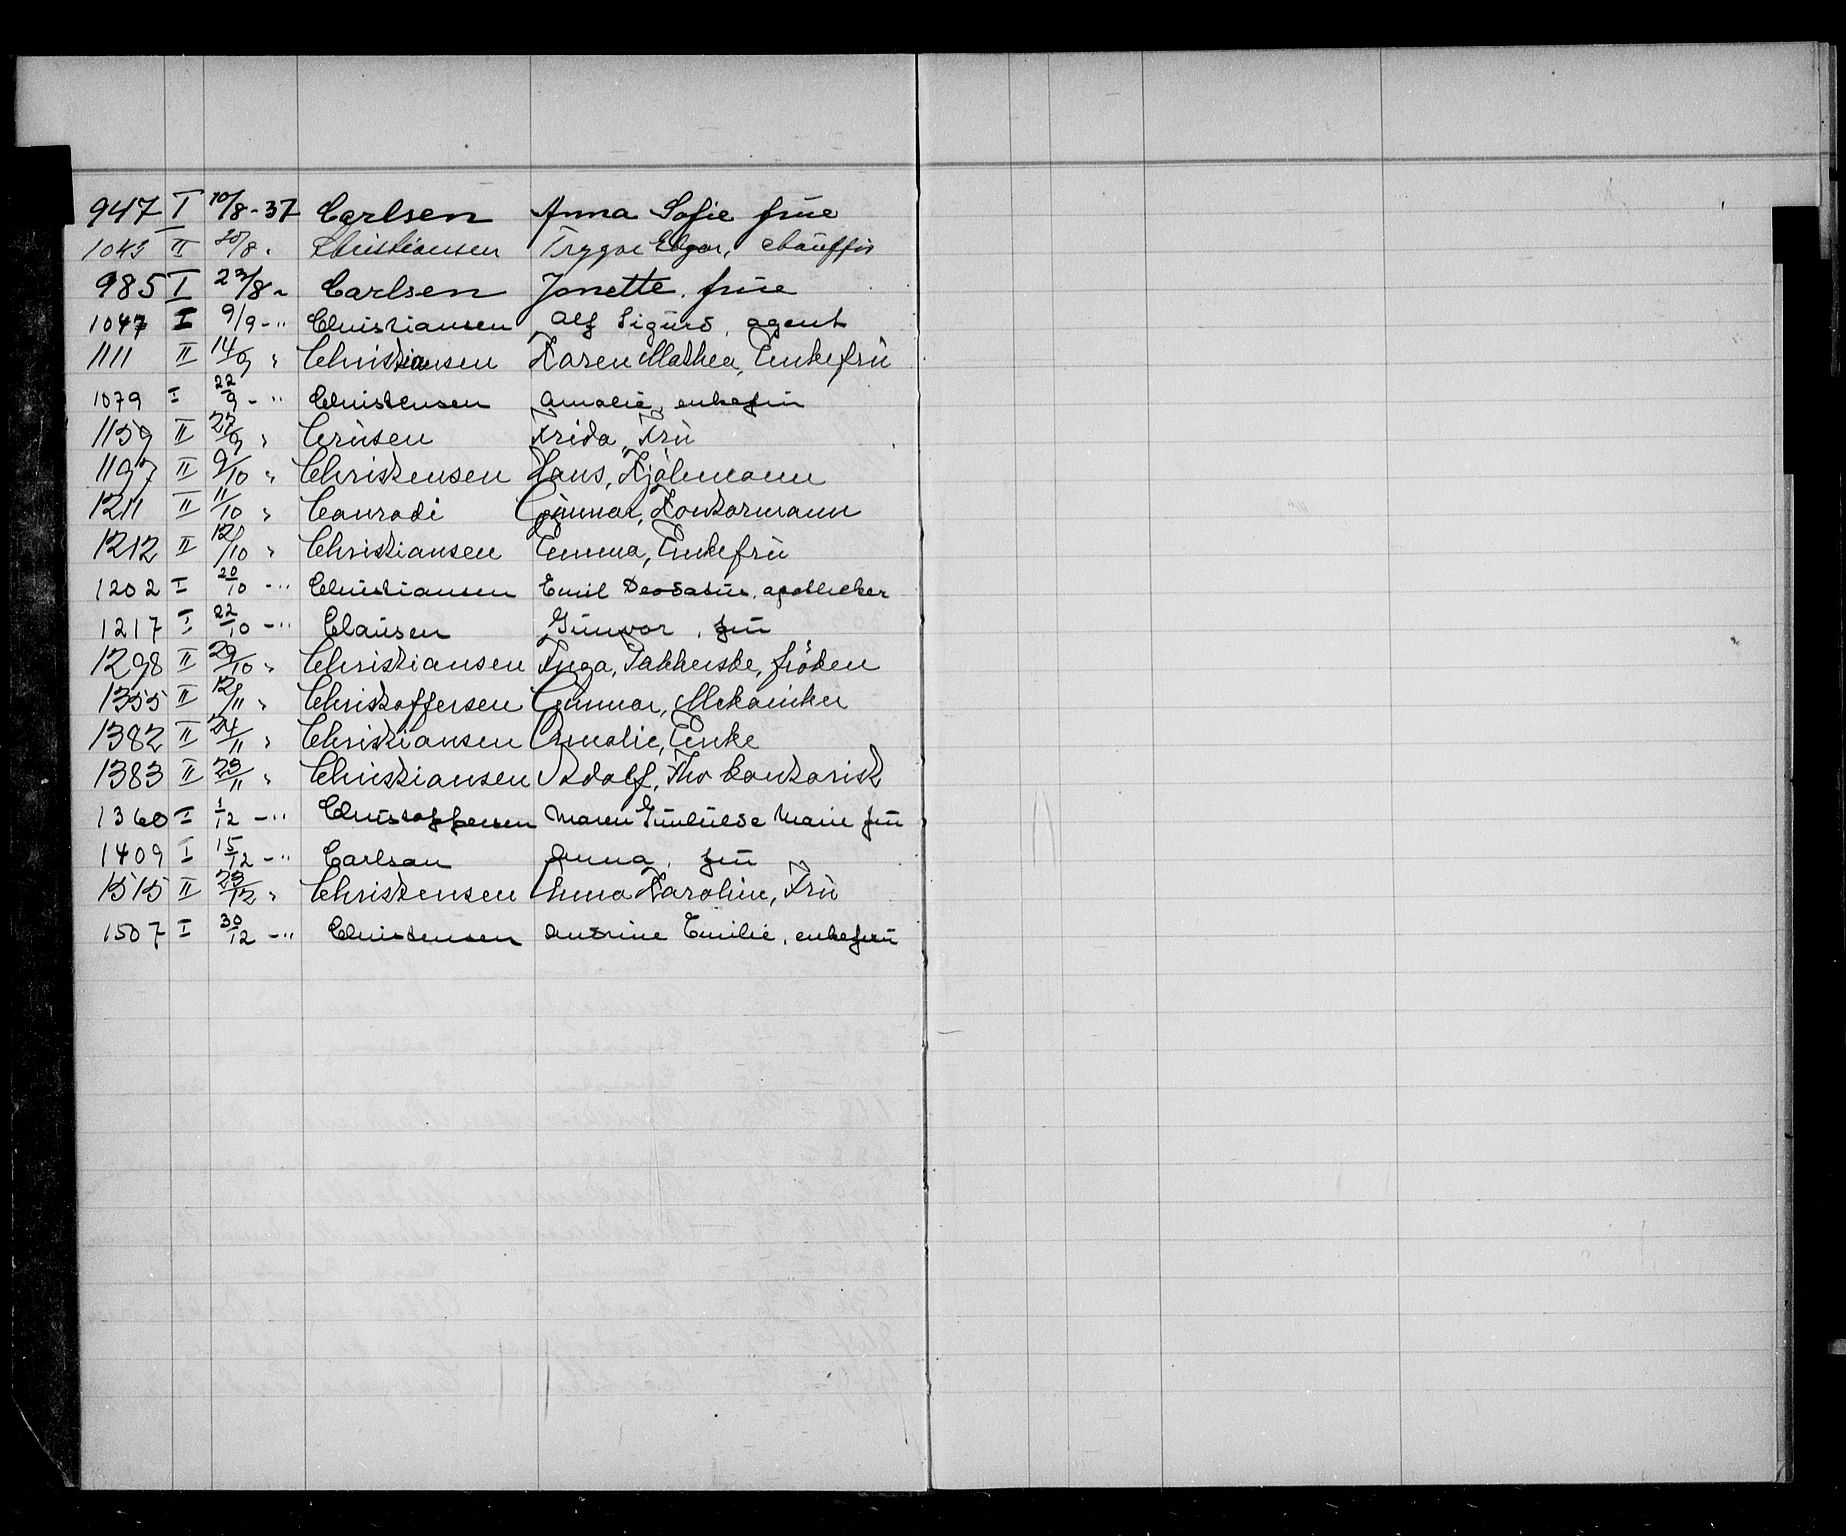 947 I 10/8-37 Carlsen Anna Sofie frue
1043 II 20/8 " Christiansen Trygve Edgar, chauffør
985 I 23/8 " Carlsen Jonette. frue
1047 I 9/9 -" Christiansen Alf Sigurd, agent
1111 II 14/9 " Christiansen Karen Mathea, Enkefru
1079 I 22/9 - " Christensen Amalie, enkefru
1159 II 27/9 " Crusen Frida, Fru
1197 II 9/10 " Christensen Hans, Kjølemann
1211 II 11/10 " Conradi Gunnar, Kontormann
1212 II 12/10 " Christiansen Emma, Enkefru
1202 I 20/10 -" Christiansen Emil Deodatus, apotheker
1217 I 22/10 -" Clausen Gunvor, fru
1298 II 29/10 " Christiansen Inga, frøken
1355 II 12/11 " Christoffersen Gunnar, Mekaniker
1382 II 24/11 " Christiansen Amalie, Enke
1383 II 23/11 " Christiansen Adolf, Fhv kontorist
1360 I 1/12 -" Christoffersen Maren Gunhilde Marie fru
1409 I 15/12 -" Carlsen Anna, fru
1515 II 23/12 " Christensen Anna Karoline, Fru
1507 I 30/12 -" Christensen Andrine Emilie, enkefru